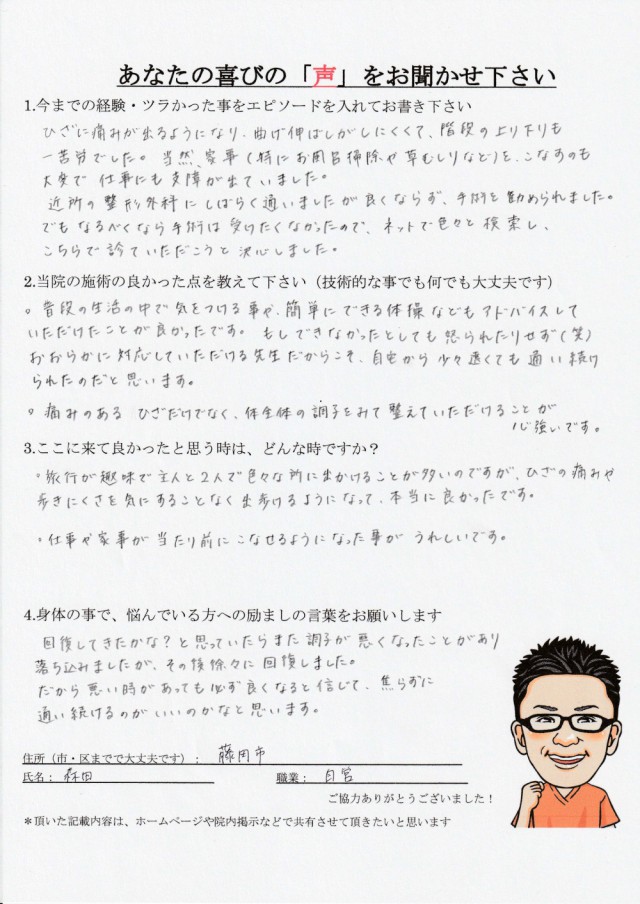 あなたの喜びの「声」をお聞かせ下さい
1.今までの経験・ツラかった事をエピソードを入れてお書き下さい
ひざに痛みが出るようになり、曲げ伸ばしがしにくくて、階段の上り下りも
一苦労でした。当然、家事(特にお風呂掃除や草むしりなど)を、こなすのも
大変で仕事にも支障が出ていました。
近所の整形外科にしばらく通いましたが良くならず、手術を勧められました。
でもなるべくなら手術は受けたくなかったので、ネットで色々と検索し、
こちらで診ていただこうと決心しました。
2.当院の施術の良かった点を教えて下さい(技術的な事でも何でも大丈夫です)
。普段の生活の中で気をつける事や、簡単にできる体操などもアドバイスして
いただけたことが良かったです。もしできなかったとしても怒られたりせず(笑)
おおらかに対応していただける先生だからこそ、自宅から少々遠くても通い続け
られたのだと思います。
。痛みのあるひざだけでなく、体全体の調子をみて整えていただけることが
心強いです。
3.ここに来て良かったと思う時は、どんな時ですか?
・旅行が趣味で主人と2人で色々な所に出かけることが多いのですが、ひざの痛みや
歩きにくさを気にすることなく出歩けるようになって、本当に良かったです。
・仕事や家事が当たり前にこなせるようになった事がうれしいです。
4.身体の事で、悩んでいる方への励ましの言葉をお願いします
回復してきたかな?と思っていたらまた調子が悪くなったことがあり
落ち込みましたが、その後徐々に回復しました。
だから悪い時があっても必ず良くなると信じて、焦らずに
通い続けるのがいいのかなと思います。
住所(市・区までで大丈夫です): 藤岡市
氏名: 森田 職業: 自営
ご協力ありがとうございました!
*頂いた記載内容は、ホームページや院内掲示などで共有させて頂きたいと思います